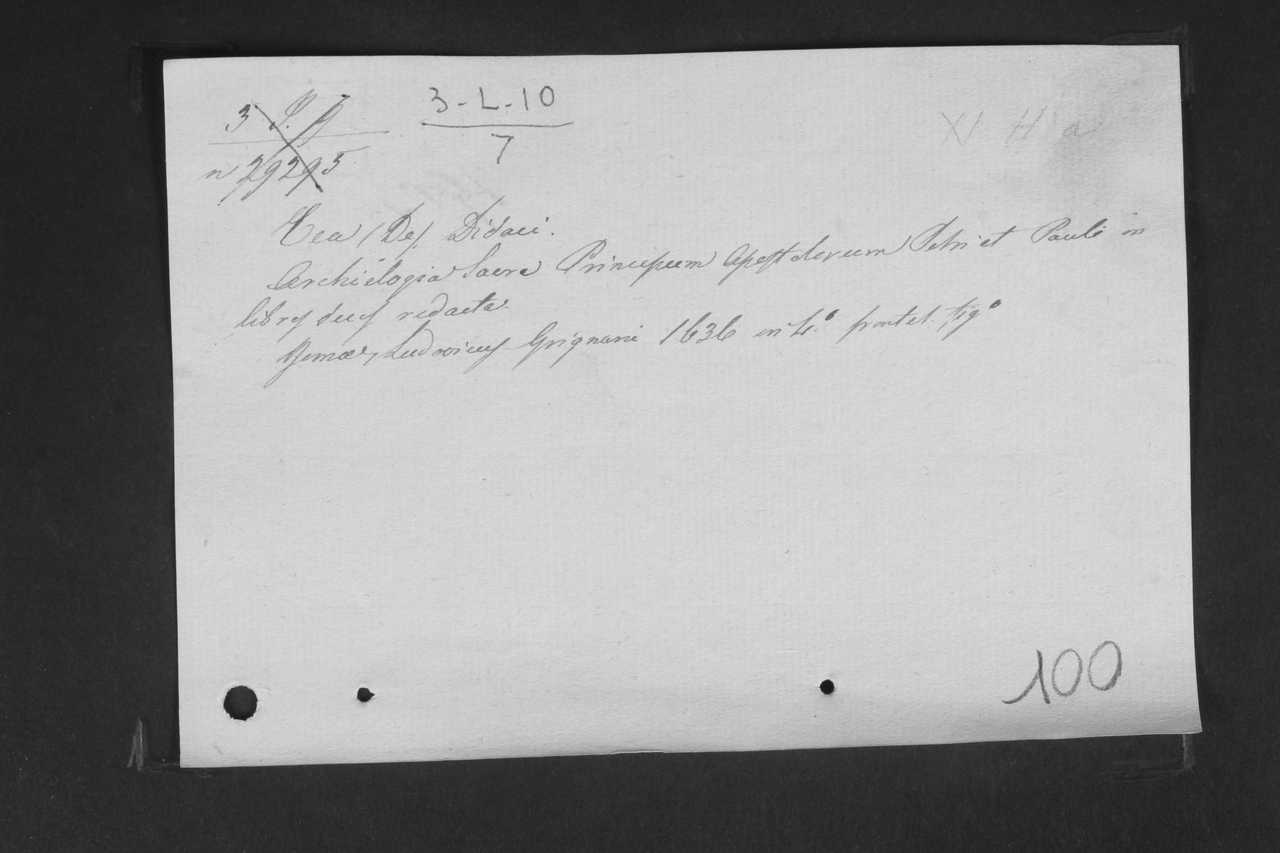 3 P. f
n 29295
3-L-10
7
XI H a
Cea (De) Didaci.
Archielogia Sacra Principum Apostolorum Petri et Pauli in
libros duos redacta.
Romæ, Ludovicus Grignani 1636 in 4.° front. fig°
100